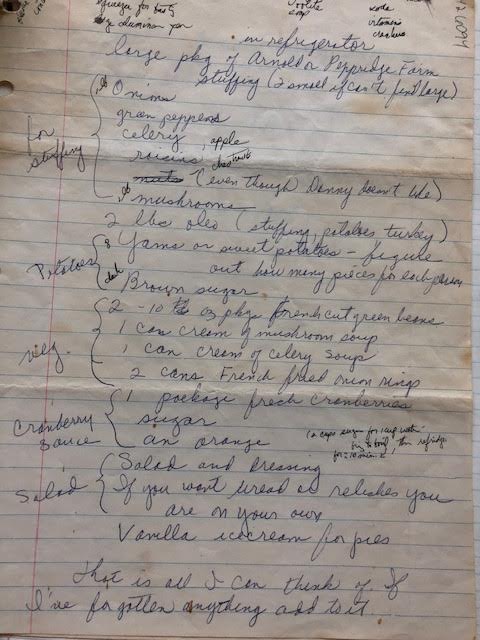 squeeze for
lge aluminum pan
soap
soda
vitamins
crackers
in refrigerator
large pkg of Arnold or Pepperidge Farm
stuffing (2 small if can't find large)
for
stuffing
Onions
green peppers
celery, apple
raisins, chestnut
nuts (even though Danny doesn't like)
mushrooms
2 lbs oleo (stuffing, potatoes, turkey)
Potatoes
Yams or sweet potatoes - figure
out how many pieces for each person
Brown sugar
veg.
2 - 10 oz pkgs french cut green beans
1 can cream of mushroom soup
1 can cream of celery soup
2 cans French fried onion rings
Cranberry
Sauce
1 package fresh cranberries
sugar
an orange
cups sugar for 1 cup water
boil, then refridge
for 10 min
Salad
Salad and dressing
If you want bread or relishes you
are on your own
Vanilla icecream for pies
That is all I can think of. If
I've forgotten anything add to it...